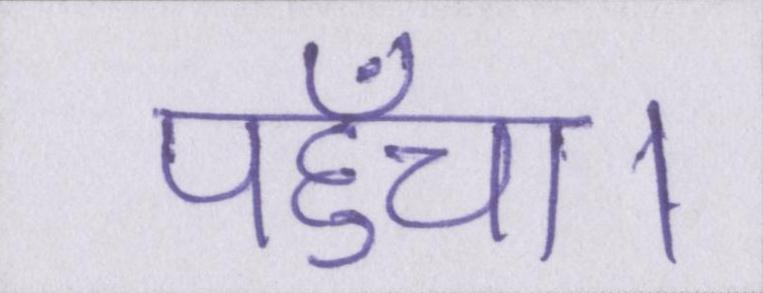 पहुँचा।